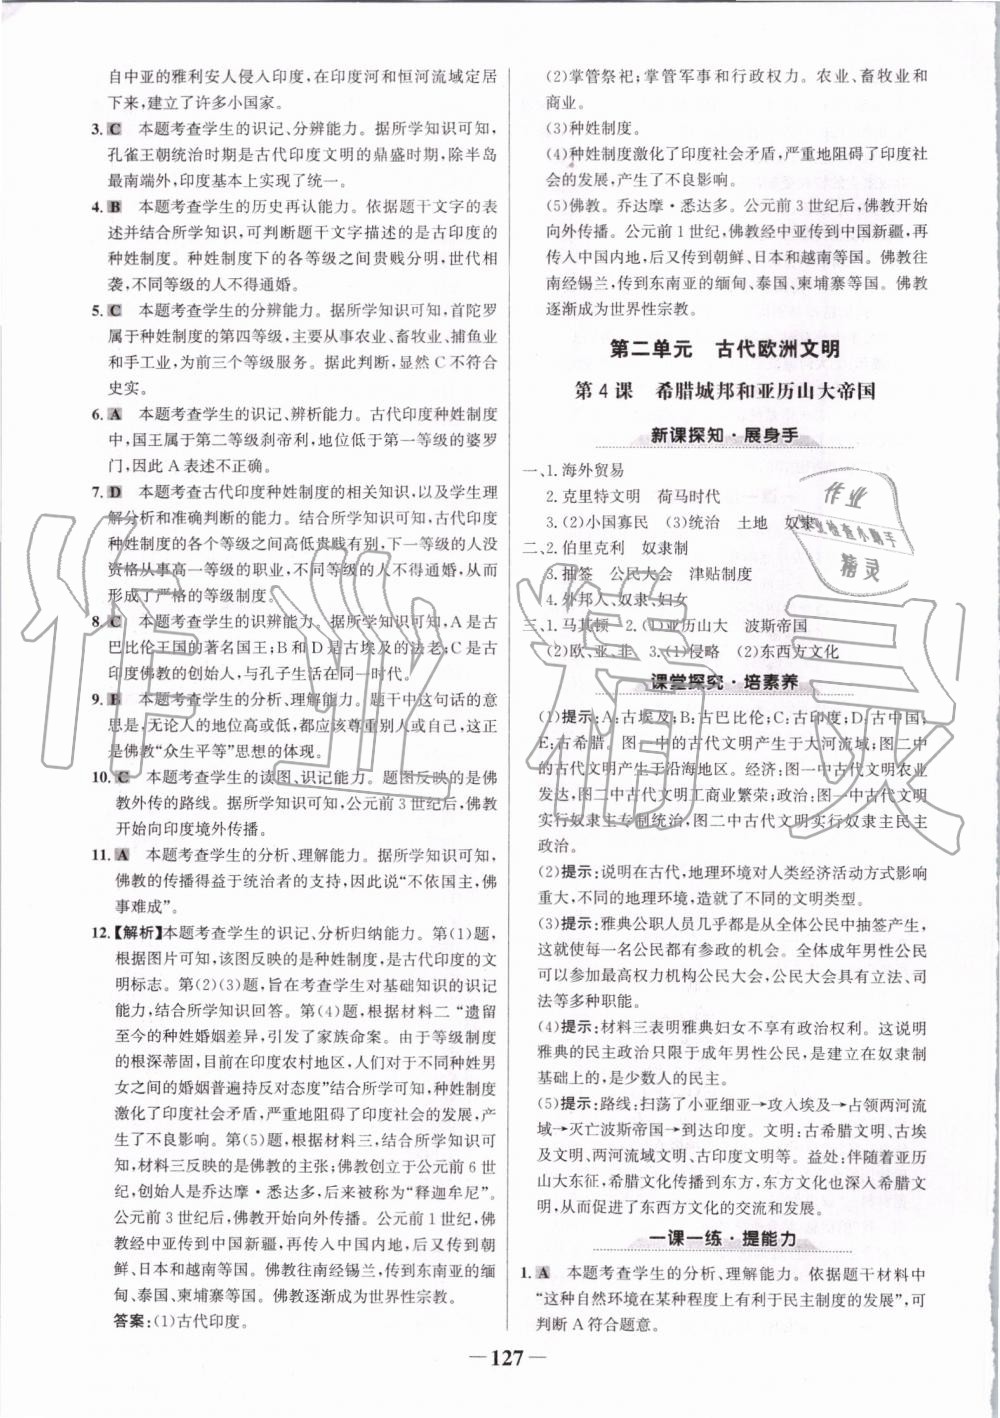 自中亚的雅利安人侵入印度,在印度河和恒河流域定居
下来,建立了许多小国家。
3. C 本题考查学生的识记、分辨能力。据所学知识可知,
孔雀王朝统治时期是古代印度文明的鼎盛时期,除半岛
最南端外,印度基本上实现了统一。
4. B 本题考查学生的历史再认能力。依据题干文字的表
述并结合所学知识,可判断题干文字描述的是古印度的
种姓制度。种姓制度下的各等级之间贵贱分明,世代相
袭,不同等级的人不得通婚。
5. C 本题考查学生的分辨能力。据所学知识可知,首陀罗
属于种姓制度的第四等级,主要从事农业、畜牧业、捕鱼业
和手工业,为前三个等级服务。据此判断,显然 C 不符合
史实。
6. A 本题考查学生的识记、辨析能力。古代印度种姓制度
中,国王属于第二等级刹帝利,地位低于第一等级的婆罗
门,因此 A 表述不正确。
7. D 本题考查古代印度种姓制度的相关知识,以及学生理
解分析和准确判断的能力。结合所学知识可知,古代印度
种姓制度的各个等级之间贵贱分明,下一等级的人没有
资格从事高一等级的职业,不同等级的人不得通婚,从而
形成了严格的等级制度。
8. C 本题考查学生的识辨能力。据所学知识可知,A 是古
巴比伦王国的著名国王;B 和 D 是古埃及的法老;C 是古
印度佛教的创始人,与孔子生活在同一时代。
9. B 本题考查学生的分析、理解能力。题干中这句话的意
思是,无论人的地位高或低,都应该尊重别人或自己,这正
是佛教“众生平等”思想的体现。
10. C 本题考查学生的读图、识记能力。题图反映的是佛
教外传的路线。据所学知识可知,公元前 3 世纪后,佛教
开始向印度境外传播。
11. A 本题考查学生的分析、理解能力。据所学知识可知,
佛教的传播得益于统治者的支持,因此说“不依国主,佛
事难成”。
12.【解析】本题考查学生的识记、分析归纳能力。第(1)题,
根据图片可知,该图反映的是种姓制度,是古代印度的文
明标志。第(2)(3)题,旨在考查学生对基础知识的识记
能力,结合所学知识回答。第(4)题,根据材料二“遗留
至今的种姓婚姻差异,引发了家族命案。由于等级制度
的根深蒂固,目前在印度农村地区,人们对于不同种姓男
女之间的婚姻普遍持反对态度”结合所学可知,种姓制度
激化了印度社会矛盾,严重地阻碍了印度社会的发展,产
生了不良影响。第(5)题,根据材料三,结合所学知识可
知,材料三反映的是佛教的主张;佛教创立于公元前 6 世
纪,创始人是乔达摩·悉达多,后来被尊称为“释迦牟尼”。
公元前 3 世纪后,佛教开始向外传播。公元前 1 世纪,
佛教经中亚传到中国新疆,再传入中国内地,后又传到朝
鲜、日本和越南等国。佛教南经锡兰,传到东南亚的缅
甸、泰国、柬埔寨等国。佛教逐渐成为世界性宗教。
答案:(1)古代印度。
(2)掌管祭祀;掌管军事和行政权力。农业、畜牧业和
商业。
(3)种姓制度。
(4)种姓制度激化了印度社会矛盾,严重地阻碍了印度社会
的发展,产生了不良影响。
(5)佛教。乔达摩·悉达多。公元前 3 世纪后,佛教开始
向外传播。公元前 1 世纪,佛教经中亚传到中国新疆,再
传入中国内地,后又传到朝鲜、日本和越南等国。佛教
南经锡兰,传到东南亚的缅甸、泰国、柬埔寨等国。佛教
逐渐成为世界性宗教。
第二单元 古代欧洲文明
第 4 课 希腊城邦和亚历山大帝国
新课探知·展身手
一、1. 海外贸易
2. 克里特文明 荷马时代
3. (2)小国寡民 (3)统治 土地 奴隶
二、2. 伯里克利 奴隶制
3. 抽签 公民大会 津贴制度
4. 外邦人、奴隶、妇女
三、1. 马其顿 2. (1)亚历山大 波斯帝国
(2)欧、亚、非 3. (1)侵略 (2)东西方文化
课堂探究·培素养
(1)提示:A:古埃及;B:古巴比伦;C:古印度;D:古中国;
E:古希腊。图一中的古代文明产生于大河流域;图二中
的古代文明产生于沿海地区。经济:图一中古代文明农业
发达,图二中古代文明工商业繁荣;政治:图一中古代文明
实行奴隶主专制统治,图二中古代文明实行奴隶主民主
政治。
(2)提示:说明在古代,地理环境对人类经济活动方式影响
重大,不同的地理环境,造就了不同的文明类型。
(3)提示:雅典公职人员几乎都是从全体公民中抽签产生,
这就使每一名公民都有参政的机会。全体成年男性公民
可以参加最高权力机构公民大会,公民大会具有立法、司
法等多种职能。
(4)提示:材料三表明雅典妇女不享有政治权利。这说明
雅典的民主政治只限于成年男性公民,是建立在奴隶制
基础上的,是少数人的民主。
(5)提示:路线:扫荡了小亚细亚→攻入埃及→占领两河流
域→灭亡波斯帝国→到达印度。文明:古希腊文明、古埃
及文明、两河流域文明、古印度文明等。益处:伴随着亚历
山大东征,希腊文化传播到东方,东方文化也深入希腊文
明,促进了东西方文化的交流和发展。
一课一练·提能力
1. A 本题考查学生的分析、理解能力。依据题干材料中
“这种自然环境在某种程度上有利于民主制度的发展”,可
判断 A 符合题意。
作业
作业检查小助手
精灵
作业精灵
— 127 —